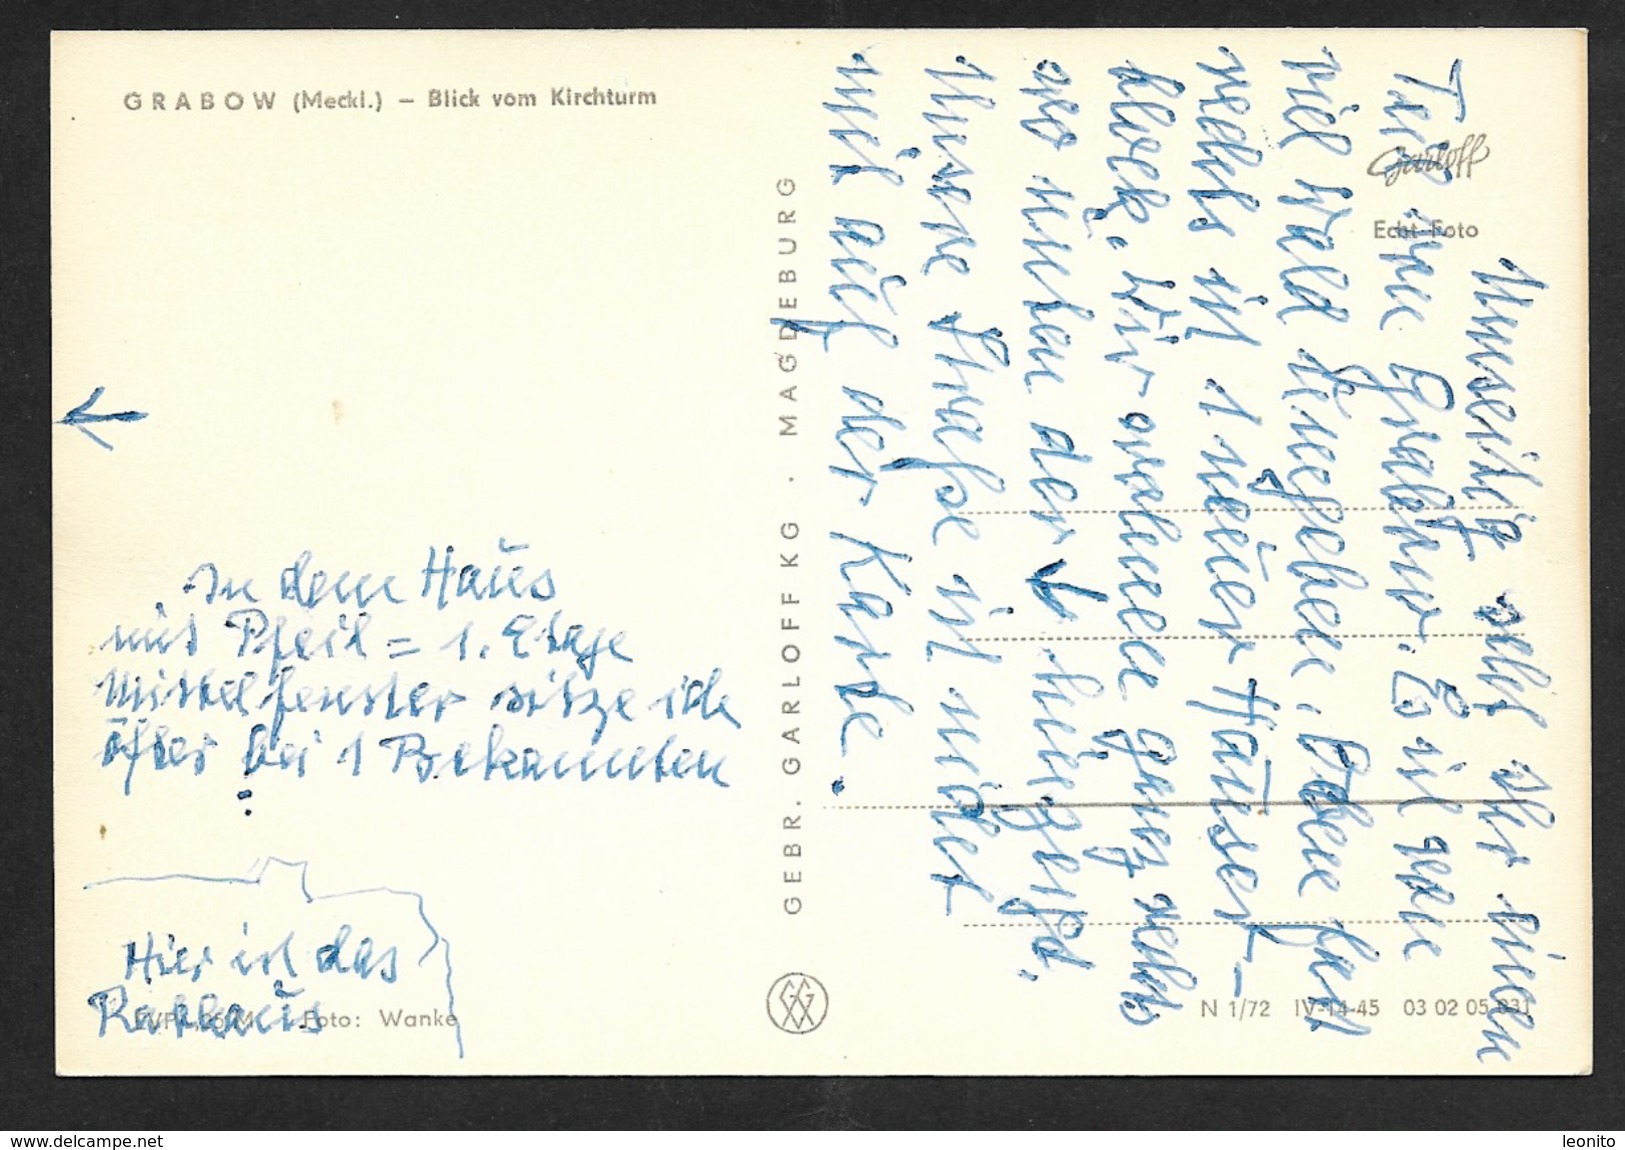 GRABOW (Meckl.) — Blick vom Kirchturm
In dem Haus
mit Pfeil = 1. Etage
Mittelfenster sitze ich
öfter bei 1 Bekannten
Hier ist das
Rathaus
Foto: Wanke
GEBR. GARLOFF KG · MAGDEBURG
Garloff
Echt Foto
Umseitig seht Ihr einen
Teil von Grabow. Es ist von
viel Wald umgeben. Oben fast
rechts ist 1 neuer Häuser-
block. Wir wohnen ganz rechts
wo unten der ↓ hinzeigt.
Unsere Straße ist nicht
mit auf der Karte.
N 1/72 IV-14-45 03 02 05 031
delcampe.net
leonito